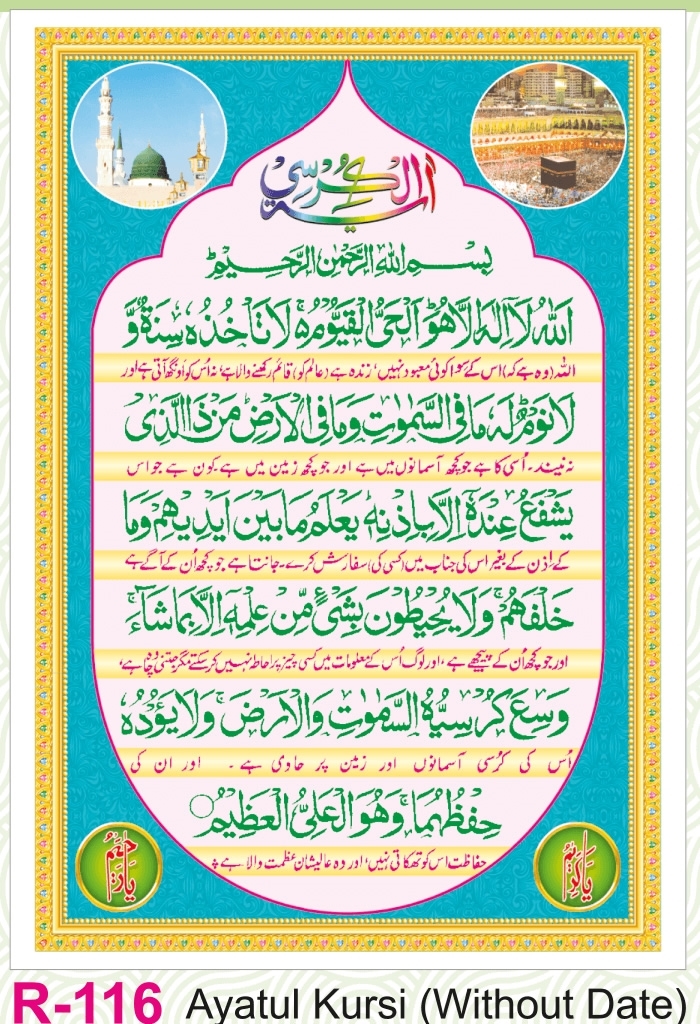 آیۃ الکرسی
بِسْمِ اللهِ الرَّحْمٰنِ الرَّحِيْمِ
اَللهُ لَاۤ اِلٰهَ اِلَّا هُوَ اَلْحَيُّ الْقَيُّوْمُ ەۚ لَا تَاْخُذُهٗ سِنَةٌ وَّ
اللہ (وہ ہے کہ) اس کے سوا کوئی معبود نہیں، زندہ ہے (عالم کو) قائم رکھنے والا ہے، نہ اُس کو اونگھ آتی ہے اور
لَا نَوْمٌ لَهٗ مَا فِي السَّمٰوٰتِ وَمَا فِي الْاَرْضِ مَنْ ذَا الَّذِيْ
نہ نیند۔ اُسی کا ہے جو کچھ آسمانوں میں ہے اور جو کچھ زمین میں ہے۔ کون ہے جو اس
يَشْفَعُ عِنْدَهٗ اِلَّا بِاِذْنِهٖ يَعْلَمُ مَا بَيْنَ اَيْدِيْهِمْ وَمَا
کے اِذن کے بغیر اس کی جناب میں (کسی کی) سفارش کرے۔ جانتا ہے جو کچھ اُن کے آگے ہے
خَلْفَهُمْۚ وَلَا يُحِيْطُوْنَ بِشَيْءٍ مِّنْ عِلْمِهٖ اِلَّا بِمَا شَآءَۚ
اور جو کچھ اُن کے پیچھے ہے، اور لوگ اُس کے معلومات میں کسی چیز پر احاطہ نہیں کر سکتے مگر جتنی وہ چاہے،
وَسِعَ كُرْسِيُّهُ السَّمٰوٰتِ وَالْاَرْضَۚ وَلَا يَـُٔوْدُهٗ
اُس کی کُرسی آسمانوں اور زمین پر حاوی ہے۔ اور ان کی
حِفْظُهُمَاۚ وَهُوَ الْعَلِيُّ الْعَظِيْمُ
حفاظت اس کو تھکاتی نہیں، اور وہ عالیشان عظمت والا ہے
R-116 Ayatul Kursi (Without Date)